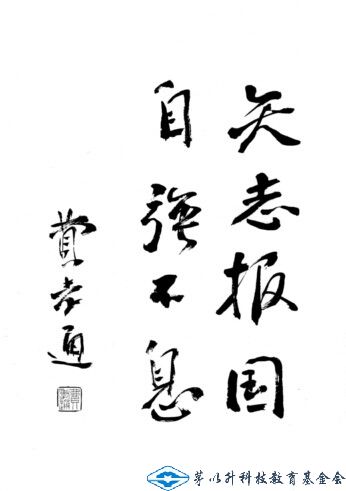 矢志报国
自强不息
费孝通
茅以升科技教育基金会